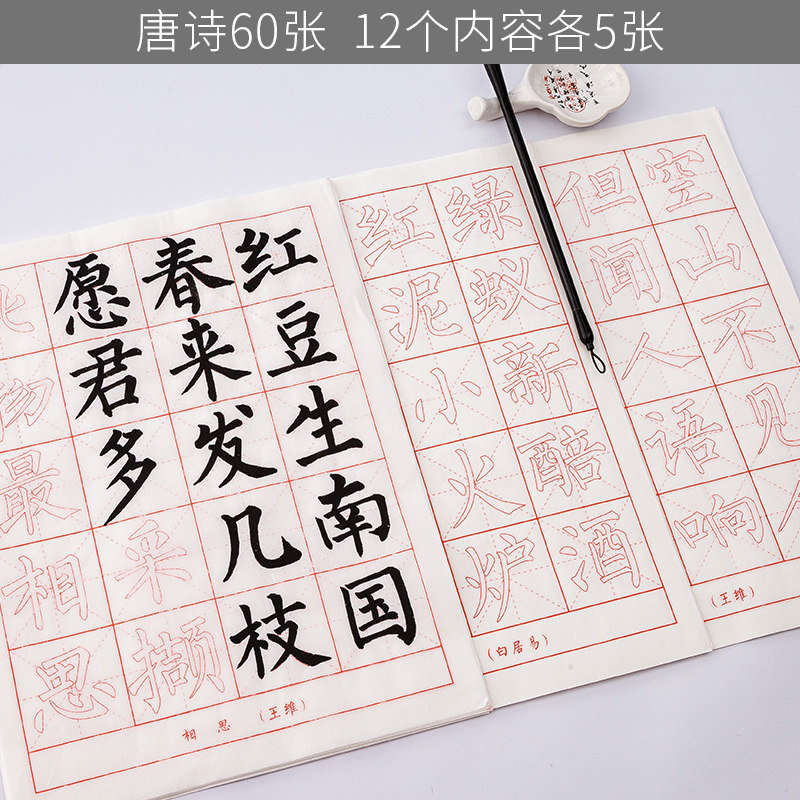 唐诗60张 12个内容各5张
红豆生南国
春来发几枝
愿君多采撷
物最相思
相思 (王维)
绿蚁新醅酒
红泥小火炉
(白居易)
空山不见人
但闻人语响
(王维)